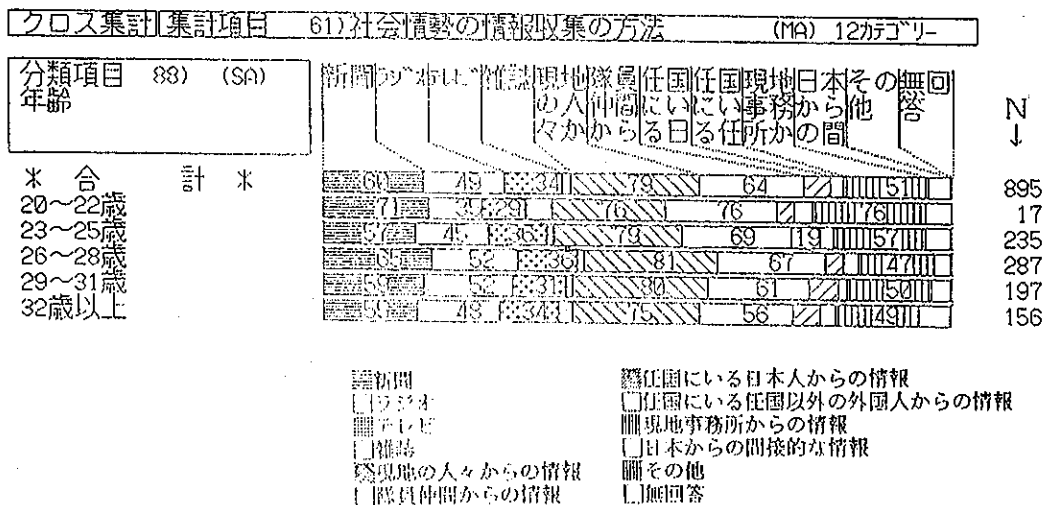 クロス集計 集計項目 61)社会情勢の情報収集の方法 (MA) 12カテゴリー
分類項目 88) (SA)
年齢
新聞 ラジオ テレビ 雑誌 現地の人々か 隊員仲間から 任国にいる日 任国にいる任 現地事務所か 日本からの間 その他 無回答 N↓
* 合計 * 60 49 34 79 64 51 895
20〜22歳 71 35 29 76 76 76 17
23〜25歳 57 45 36 79 69 19 57 235
26〜28歳 65 52 36 81 67 47 287
29〜31歳 59 31 80 61 50 197
32歳以上 48 34 75 56 49 156
新聞 任国にいる日本人からの情報
ラジオ 任国にいる任国以外の外国人からの情報
テレビ 現地事務所からの情報
雑誌 日本からの間接的な情報
現地の人々からの情報 その他
隊員仲間からの情報 無回答